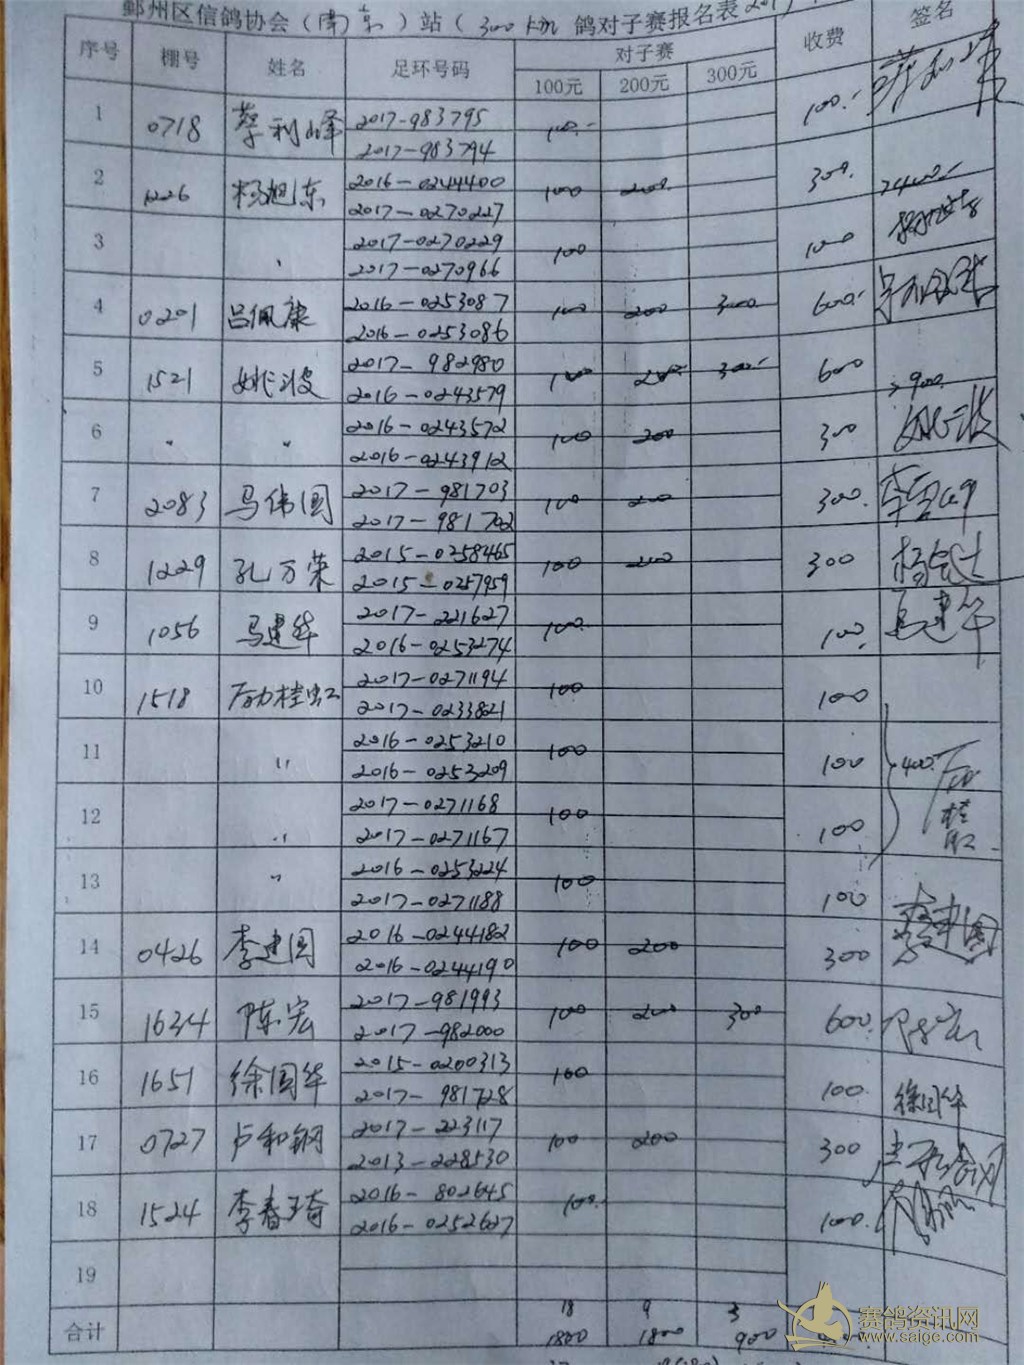 鄞州区信鸽协会（南京）站（300km 鸽对子赛报名表
序号 棚号 姓名 足环号码 对子赛 收费 签名
100元 200元 300元
1 0718 蔡利峰 2017-983795 100.- 100.-
2017-983794
2 1226 杨旭东 2016-0244400 100 200 300.
2017-0270227
3 2017-0270229 100 100
2017-0270966
4 0201 吕佩康 2016-0253087 100 200 300 600.-
2016-0253086
5 1521 姚波 2017-982980 100 200 300.- 600 900.-
2016-0243579
6 〃 〃 2016-0243572 100 200 300
2016-0243912
7 2083 马伟国 2017-981703 100 200 300.
2017-981702
8 1229 孔万荣 2015-0258465 100 200 300
2015-0257959
9 1056 马建华 2017-221627 100. 100. 马建华
2016-0253274
10 1518 励桂虹 2017-0271194 100 100
2017-0233821
11 〃 2016-0253210 100 100 400.
2016-0253209
12 〃 2017-0271168 100 100
2017-0271167
13 〃 2016-0253224 100 100
2017-0271188
14 0426 李建国 2016-0244182 100 200 300 李建国
2016-0244190
15 1634 陈宏 2017-981993 100 200 300 600. 陈宏
2017-982000
16 1651 徐国华 2015-0200313 100 100. 徐国华
2017-981728
17 0727 卢和钢 2017-223117 100 200 300 卢和钢
2013-228530
18 1524 李春琦 2016-802645 100. 100.
2016-0252627
19
合计 18 9 3
1800 1800 900
赛鸽资讯网
www.saige.com